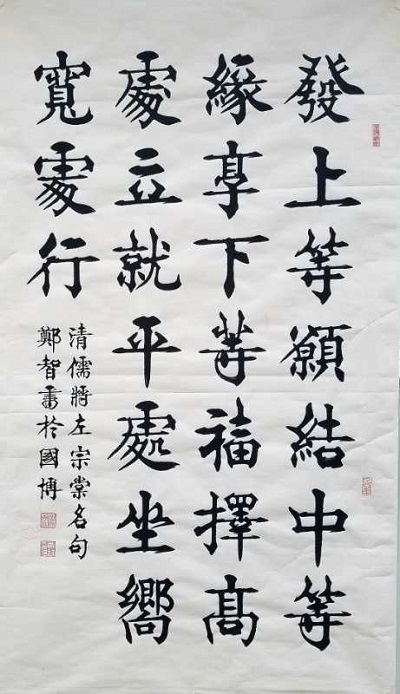 發上等願結中等
緣享下等福擇髙
處立就平處坐嚮
寬處行
清儒將左宗棠名句
鄭智書於國博